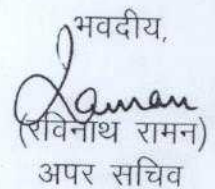 भवदीय,
Raman
(रविनाथ रामन)
अपर सचिव